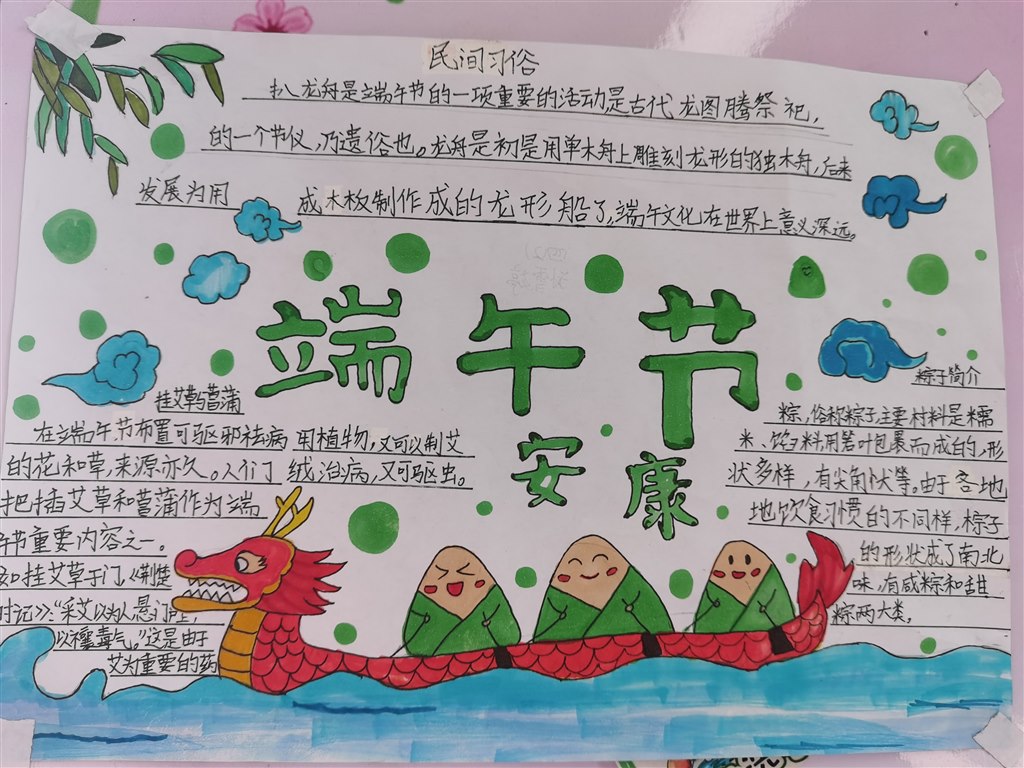 民间习俗
扒龙舟是端午节的一项重要的活动是古代龙图腾祭祀,
的一个节仪,乃遗俗也。龙舟是初是用单木舟上雕刻龙形的独木舟,后来
发展为用 成木板制作成的龙形船了,端午文化在世界上意义深远。
端午节
安康
挂艾草与菖蒲
在端午节布置可驱邪祛病
的花和草,来源亦久。人们
把插艾草和菖蒲作为端
午节重要内容之一。
如挂艾草于门,《荆楚
时记》:“采艾以为人悬门上,
以禳毒气。”这是由于
艾为重要的药
用植物,又可以制艾
绒治病,又可驱虫。
粽子简介
粽,俗称粽子,主要材料是糯
米、馅料用箬叶包裹而成的,形
状多样,有尖角状等。由于各地
地饮食习惯的不同样,粽子
的形状成了南北
味,有咸粽和甜
粽两大类。